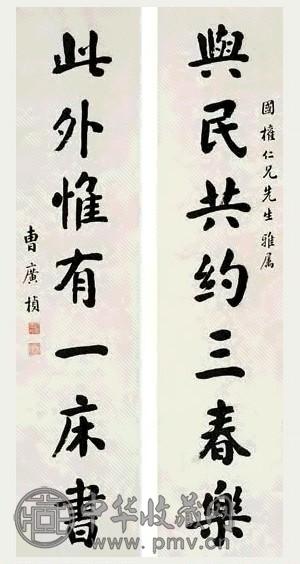 國權仁兄先生雅屬
與民共约三春樂
此外惟有一床書
曹廣楨
中华收藏网
www.pmv.cn